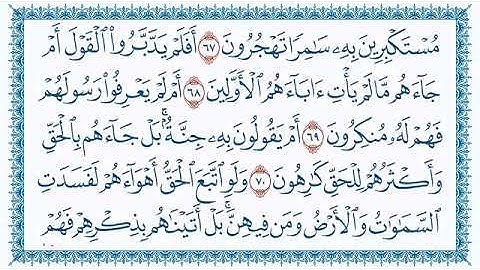 مُسْتَكْبِرِينَ بِهِۦ سَٰمِرًا تَهْجُرُونَ ٦٧ أَفَلَمْ يَدَّبَّرُوا۟ ٱلْقَوْلَ أَمْ
جَآءَهُم مَّا لَمْ يَأْتِ ءَابَآءَهُمُ ٱلْأَوَّلِينَ ٦٨ أَمْ لَمْ يَعْرِفُوا۟ رَسُولَهُمْ
فَهُمْ لَهُۥ مُنكِرُونَ ٦٩ أَمْ يَقُولُونَ بِهِۦ جِنَّةٌۢ ۚ بَلْ جَآءَهُم بِٱلْحَقِّ
وَأَكْثَرُهُمْ لِلْحَقِّ كَٰرِهُونَ ٧٠ وَلَوِ ٱتَّبَعَ ٱلْحَقُّ أَهْوَآءَهُمْ لَفَسَدَتِ
ٱلسَّمَٰوَٰتُ وَٱلْأَرْضُ وَمَن فِيهِنَّ ۚ بَلْ أَتَيْنَٰهُم بِذِكْرِهِمْ فَهُمْ